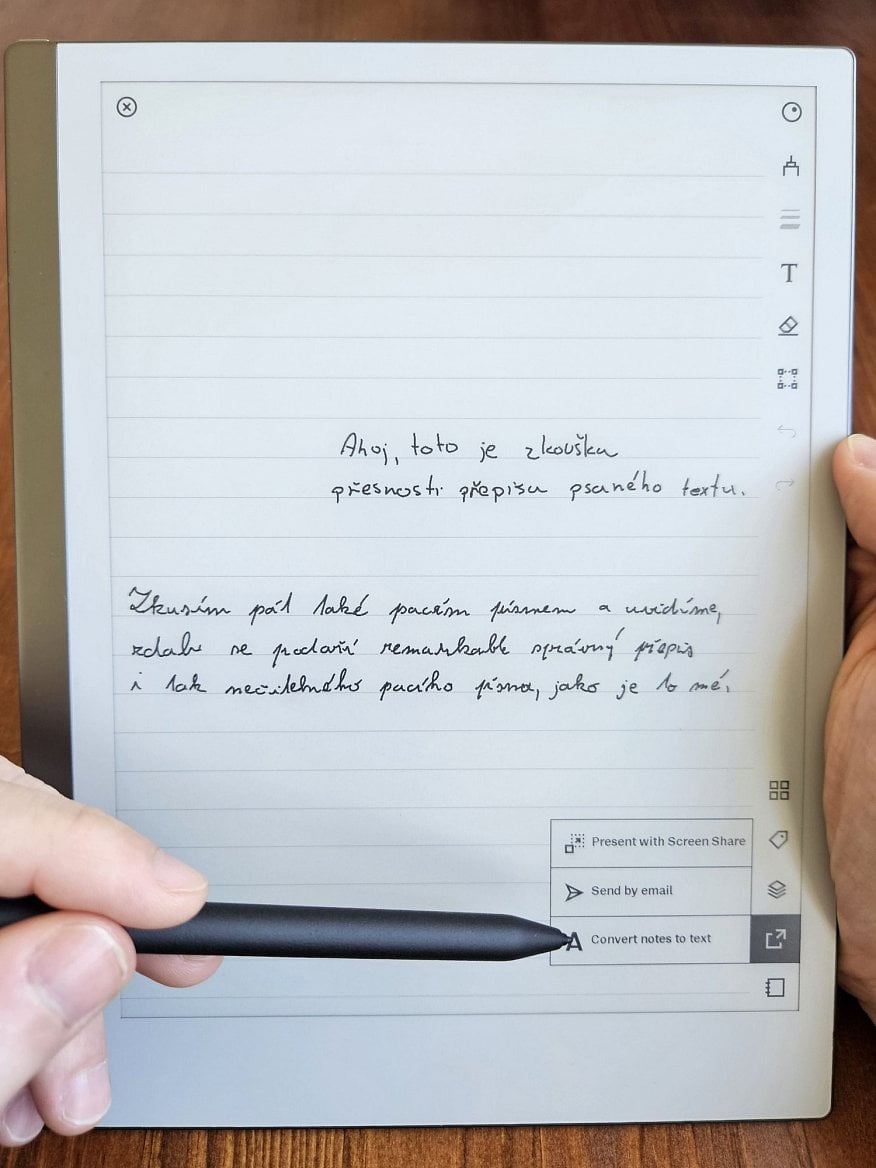 Ahoj, toto je zkouška
přesnosti přepisu psaného textu.
Zkusím psát také psacím písmem a uvidíme,
zdali se podaří remarkable správný přepis
i tak nečitelného psacího písma, jako je to mé.
Present with Screen Share
Send by email
Convert notes to text